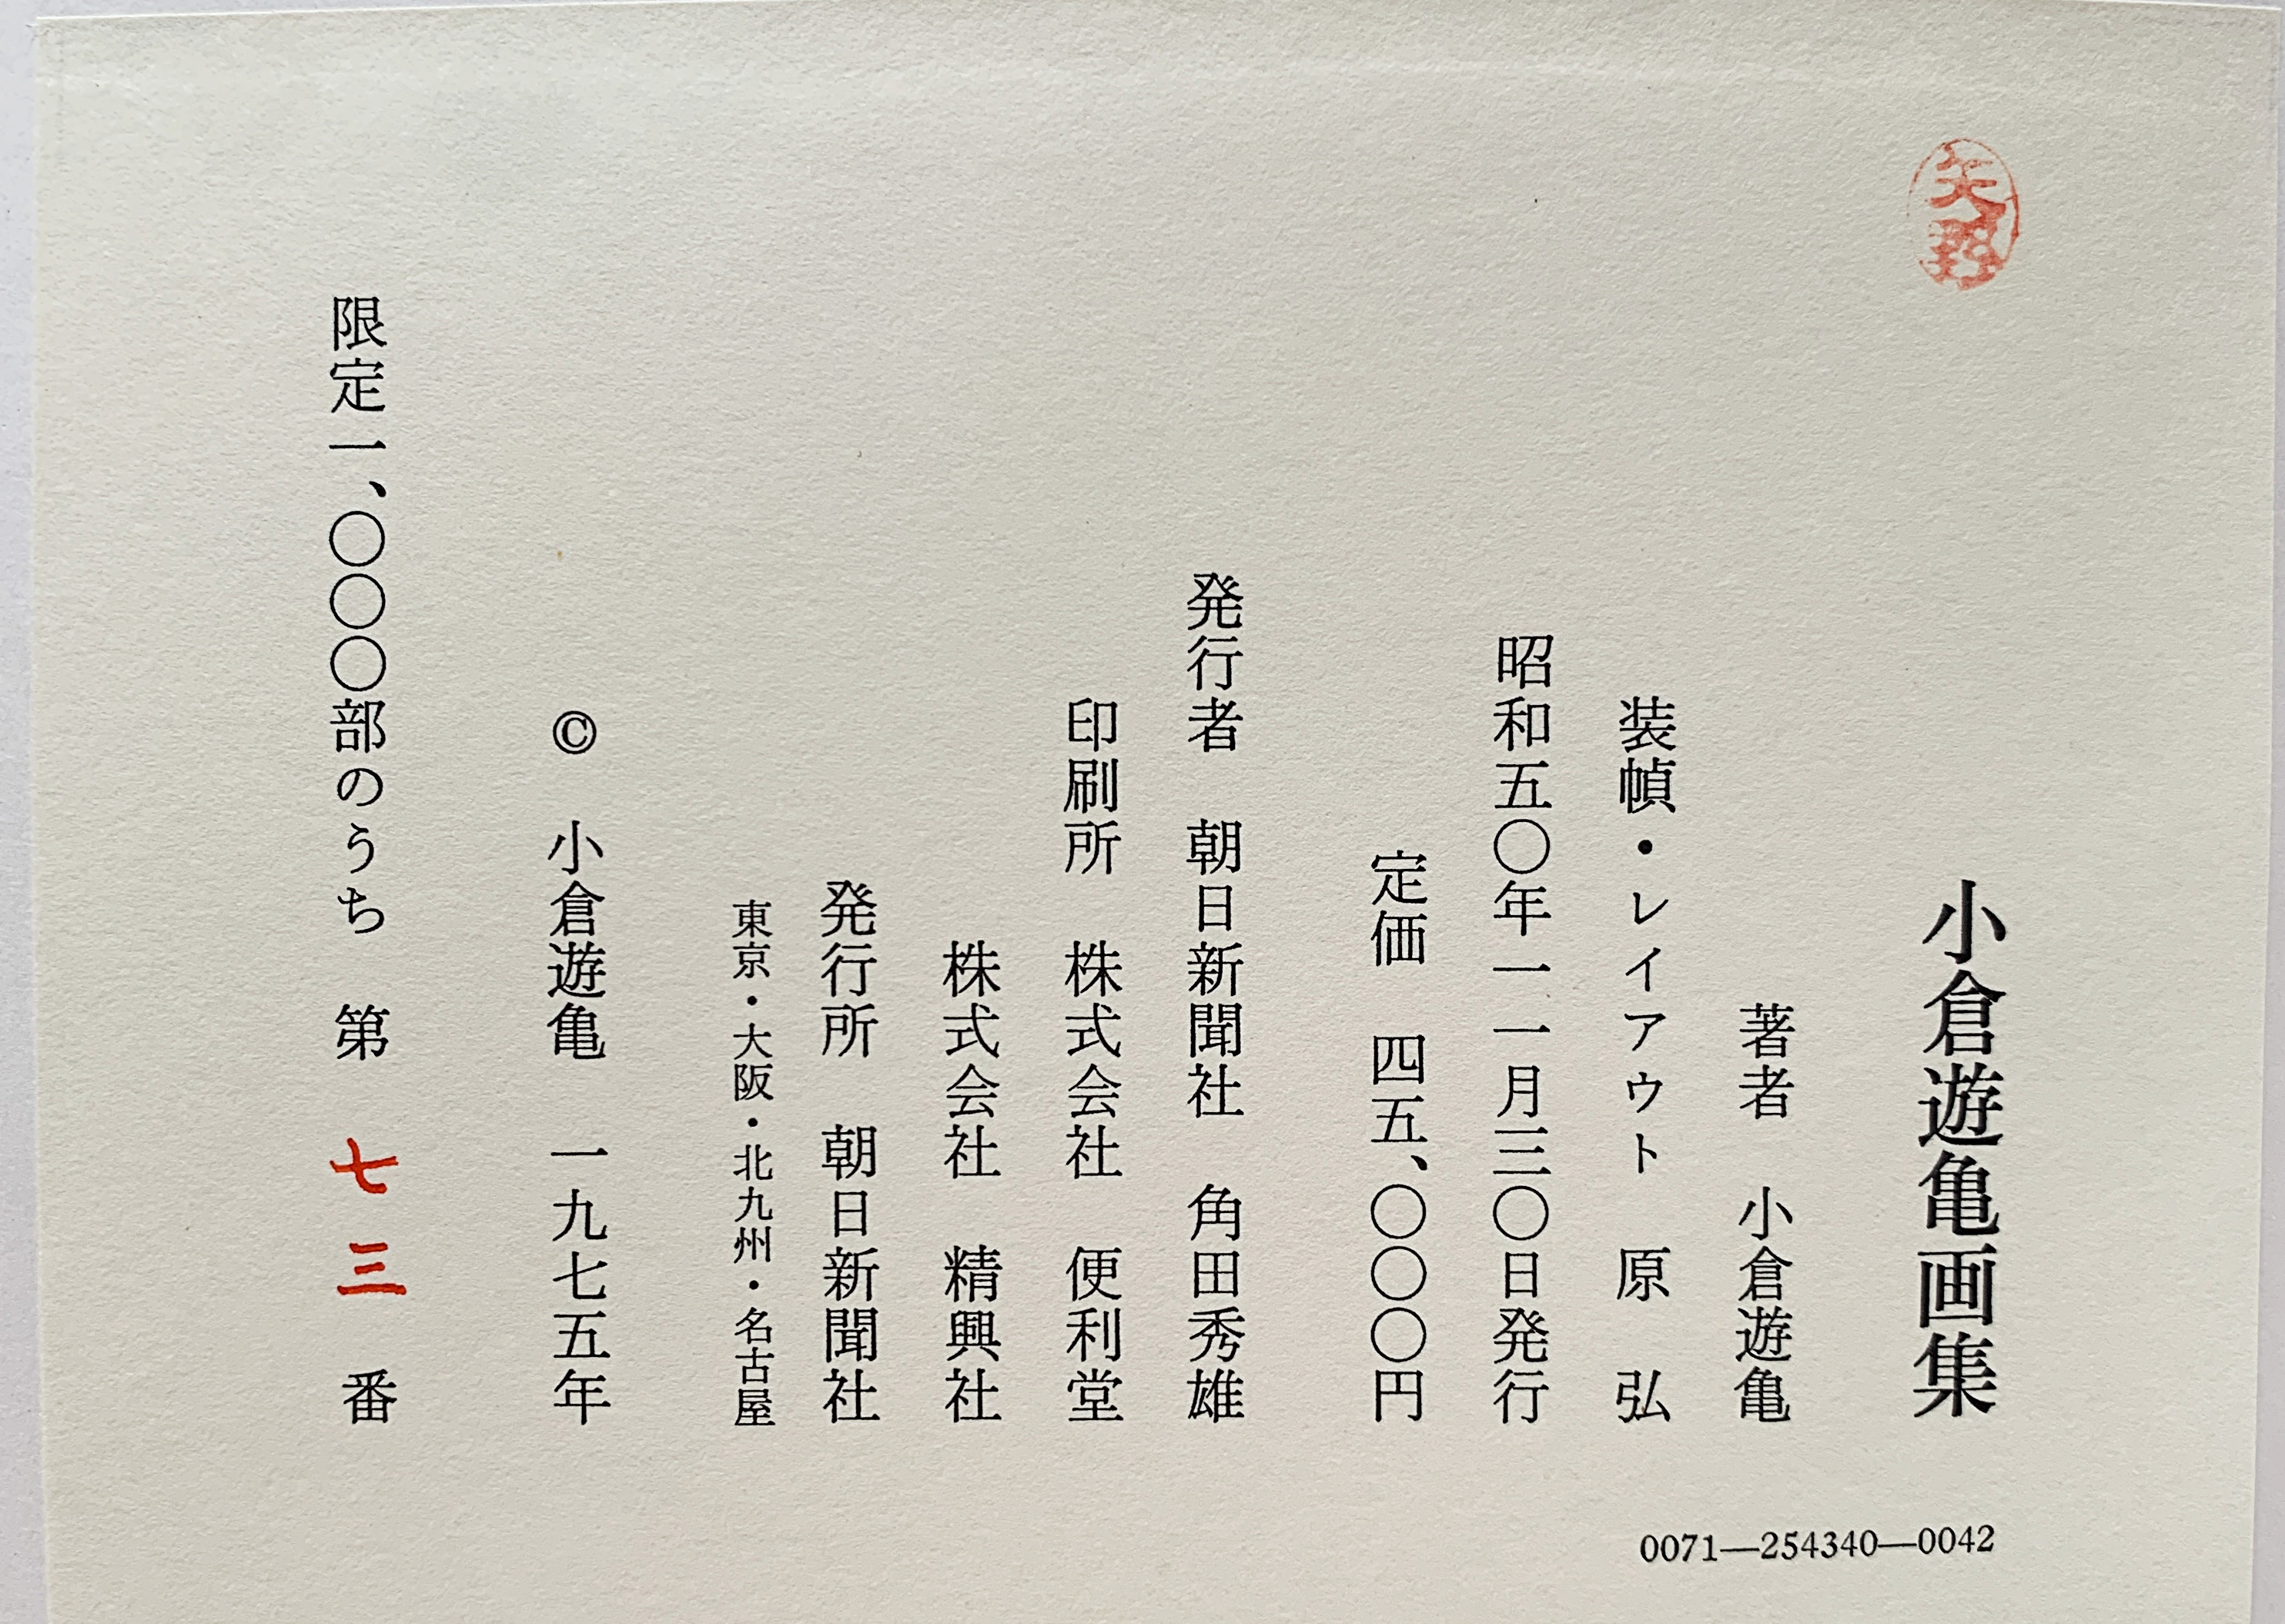 小倉遊亀画集
著者　小倉遊亀
装幀・レイアウト　原　弘
昭和五〇年一一月三〇日発行
定価　四五、〇〇〇円
発行者　朝日新聞社　角田秀雄
印刷所　株式会社　便利堂
株式会社　精興社
発行所　朝日新聞社
東京・大阪・北九州・名古屋
© 小倉遊亀　一九七五年
限定一、〇〇〇部のうち　第　七三　番
0071―254340―0042